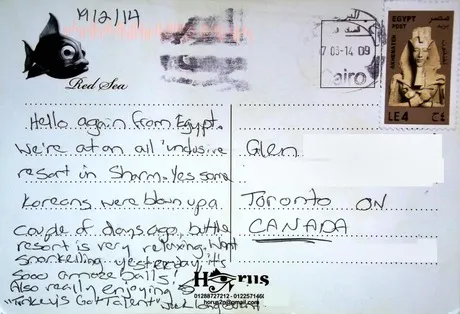 19/2/14
Red Sea
7 03-14 09
airo
EGYPT
POST
LE4
Hello again from Egypt.
We're at an all inclusive
resort in Sharm. Yes some
Koreans were blown up a
couple of days ago, but the
resort is very relaxing. Went
snorkelling yesterday, it's
sooo amaze balls!
Also really enjoying
"Turkey's Got Talent"
Glen
Toronto ON
CANADA
Horus